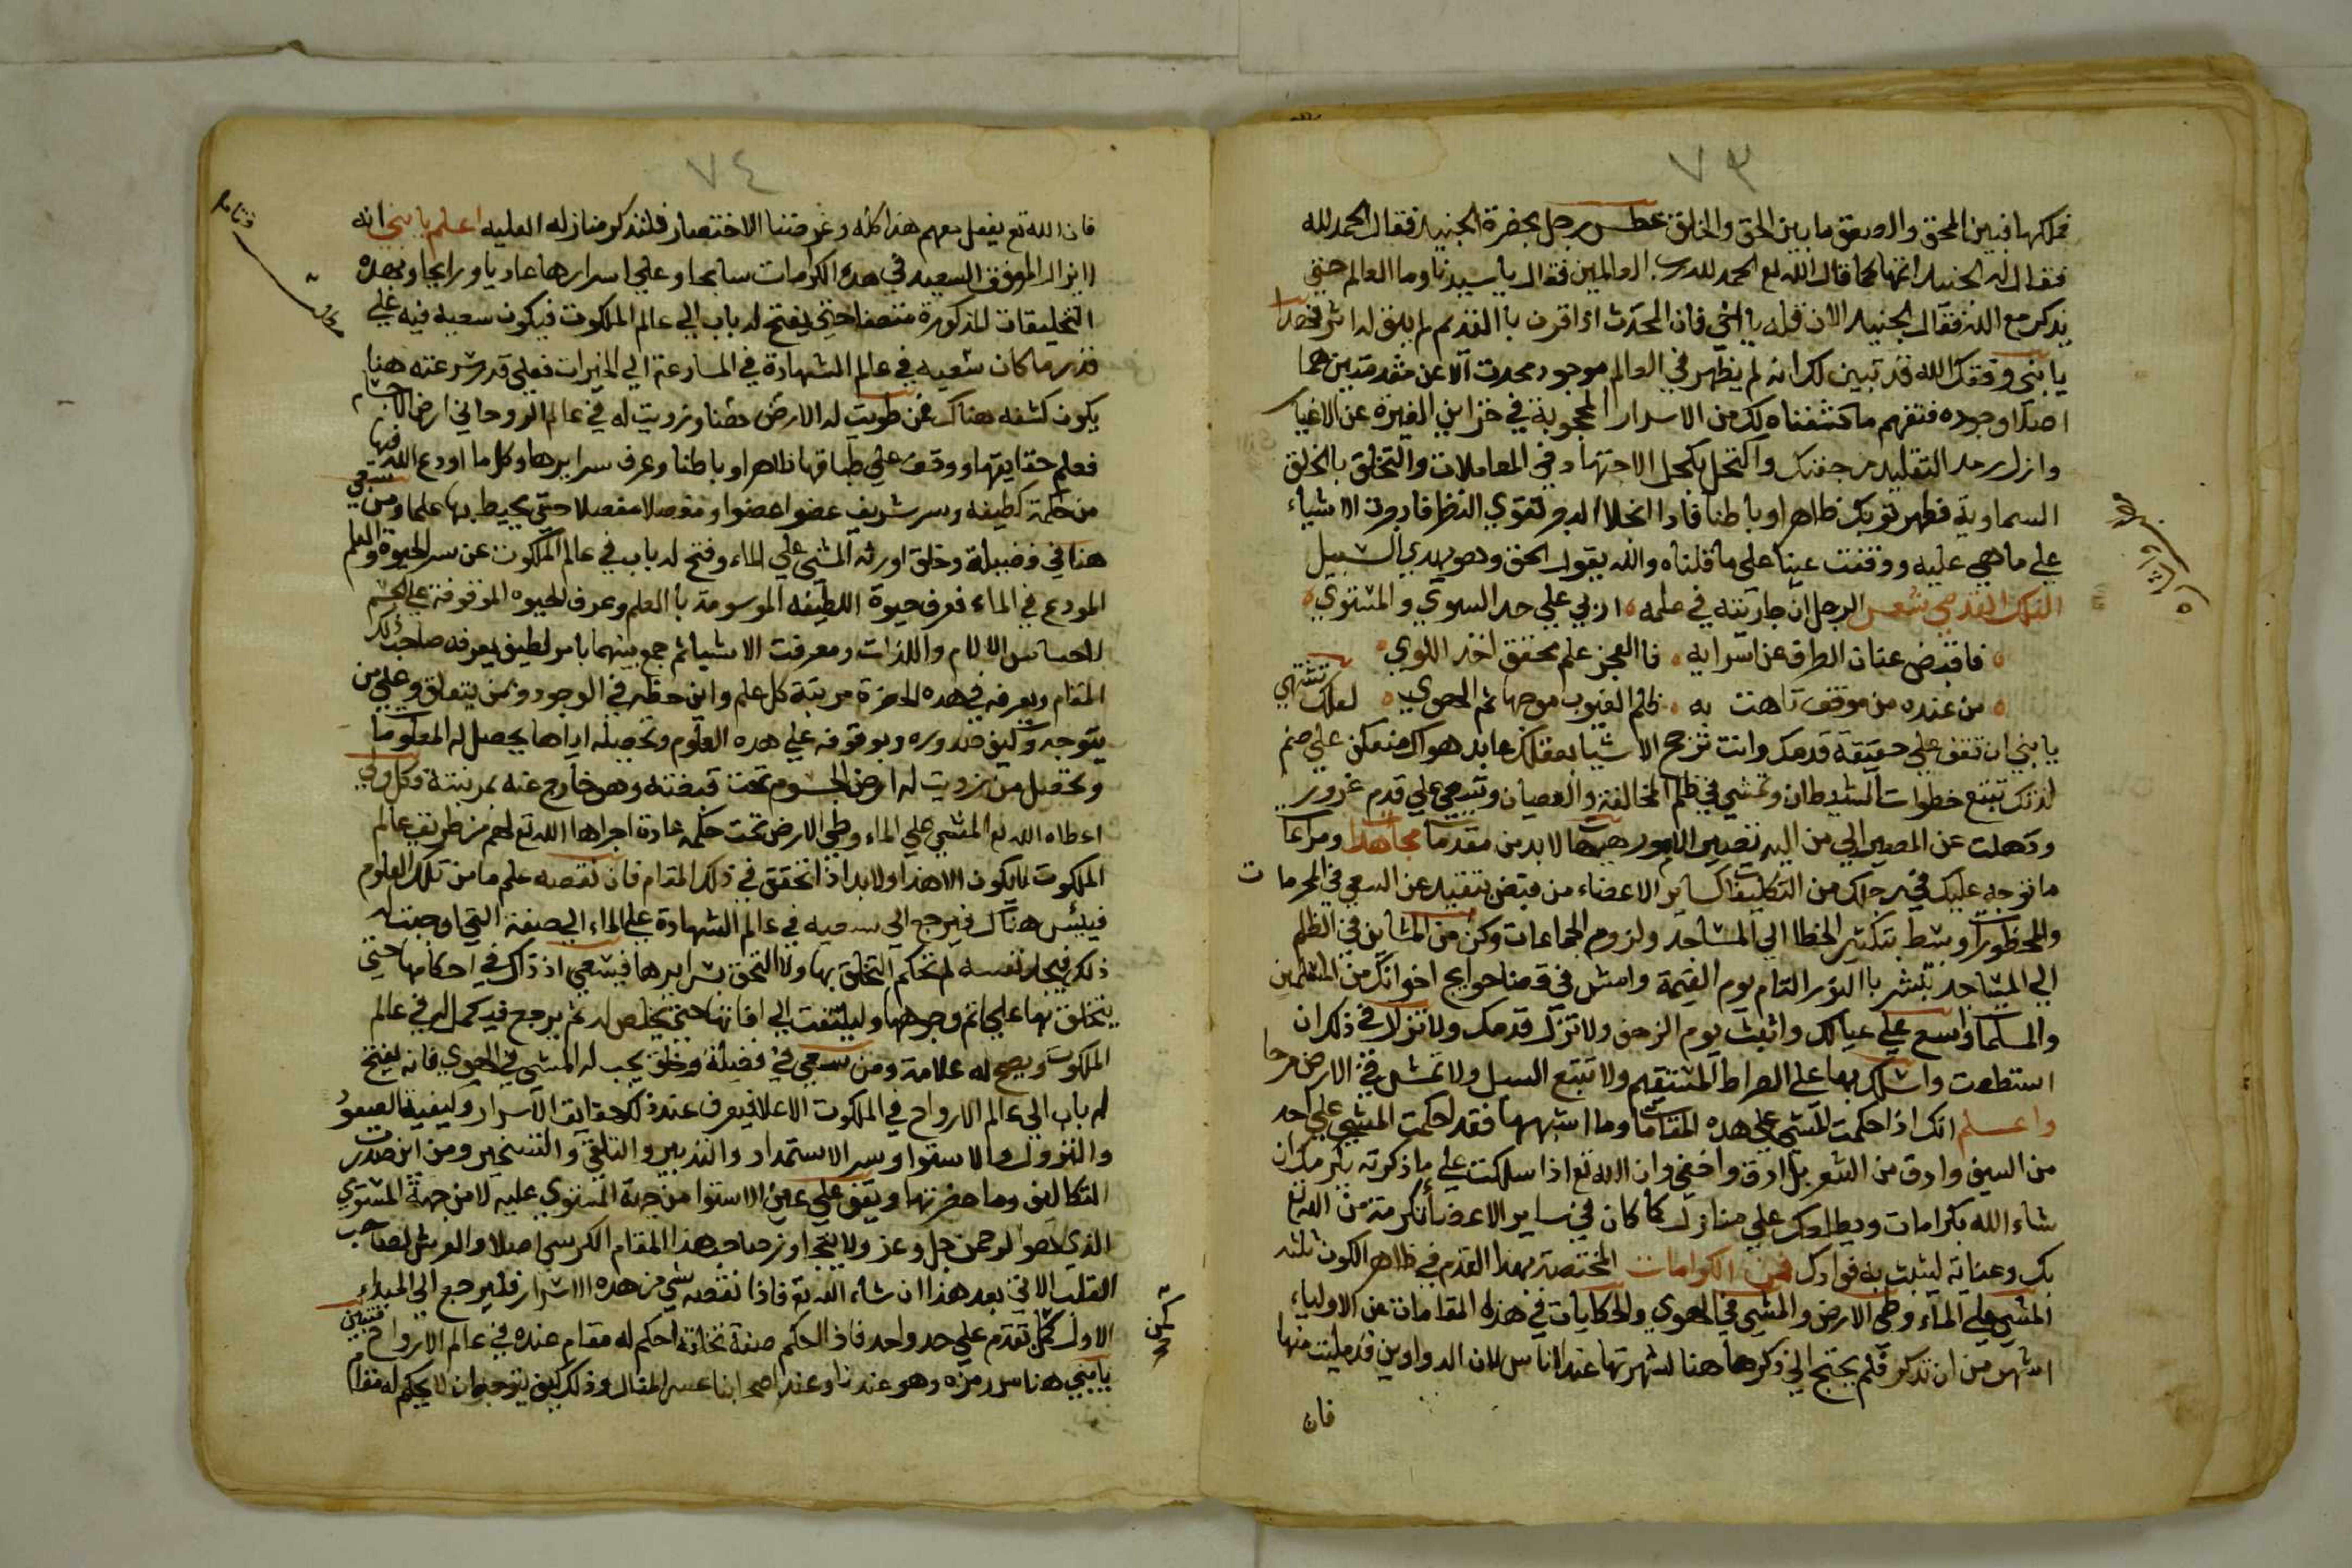 ٧٣
فملكها فبين المحق والصعق ما بين الحق والخلق عطس رجل بحضرة الجنيد فقال الحمد لله
فقال له الجنيد اتمها كما قال الله تع الحمد لله رب العالمين فقال يا سيدنا وما العالم حتى
يذكر مع الله فقال الجنيد الان قله يا اخي فان المحدث اذا اقرن با القديم لم يبق له اثر
يا بني وفقك الله قد تبين لك انه لم يظهر في العالم موجود محدث الا عن مقدمتين هما
اصلا وجوده فتفهم ما كشفناه لك من الاسرار المحجوبة في خزاين الغيرة عن الاغيار
وازل رمد التقليد من جفنك واكتحل بكحل الاجتهاد في المعاملات والتخلق بالخلق
السماوية فطهر ثوبك ظاهرا وباطنا فاذا انجلا البصر لتقوي النظر فادرك الاشياء
على ما هي عليه ووقفت عينا على ما قلناه والله يقول الحق وهو يهدي السبيل
الفلك القدمي شعر الرجل ان جاريته في علمه اربى علي حد السوي والمستوي
فاقبض عنان الطرف عن اسرايه فا العجز علم محقق اخذ اللوي
من عنده من موقف تاهت به ظلم الغيوب موجها ثم الهوي لعلك تشتهي
يا بني ان تقف علي حقيقة قدمك وانت ترجح الاشيا بعقلك عابد هواك منعكف علي صنم
لذتك تتبع خطوات الشيطان وتمشي في ظلم المخالفة والعصيان وتسعي علي قدم غرور
وذهلت عن المصير الي من اليه تصير الامور هيهات لابد من مقدمات مجاهدا ومراعا
ما توجه عليك في رجلك من التكليفا كساير الاعضاء من قبض بتقييد عن السعي في المحرمات
والمحظورات وبسط بتكثير الخطا الي المساجد ولزوم الجماعات وكن من المشاين في الظلم
الي المساجد تبشر با النور التام يوم القيمة وامش في قضا حوايج اخوانك من المسلمين
والمسلما واسع علي عيالك واثبت يوم الزحف ولا تزل قدمك ولا تزلا في ذلك ان
استطعت واسلك بها علي الصراط المستقيم ولا تتبع السبل ولا تمش في الارض مرحا
واعلم انك اذا احكمت المشي علي هذه المقامات وما اشبهها فقد احكمت المشي علي احد
من السيف وادق من الشعر بل ادق واخفي وان الله تع اذا سلكت علي ما ذكرته يكرمك ان
شاء الله بكرامات ويطلعك علي منازل كما كان في ساير الاعضا تكرمة من الله تع
بك وعناية ليثبت به فوادك فمن الكرامات المختصة بهذا القدم في ظاهر الكون ثلثه
المشي علي الماء وطي الارض والمشي في الهوي والحكايات في هذه المقامات عن الاولياء
اشهر من ان تذكر فلم يحتج الي ذكرها هنا لشهرتها عند الناس لان الدواوين قد مليت منها
فان
٧٤
فان الله تع يفعل معهم هذا كله وغرضنا الاختصار فلنذكر منازله العليه اعلم يا بني انه
لا يزال الموفق السعيد في هذه الكرامات سابحا وعلي اسرارها غاديا ورايحا وبهذه
التخليقات المذكورة متصفا حتى يفتح له باب الي عالم الملكوت فيكون سعيه فيه علي
قدر ما كان سعيه في عالم الشهادة في المسارعة الي الخيرات فعلي قدر سرعته هنا
يكون كشفه هناك فمن طويت له الارض حسا وزويت له في عالم الروحاني ارض الاجسام
فعلم حقايقها ووقف علي طباقها ظاهرا وباطنا وعرف سرايرها وكل ما اودع الله فيها
من حكمة لطيفه وسر شريف عضوا عضوا ومفصلا مفصلا حتى يحيط بها علما ومن سعي
هنا في فضيلة وخلق اورثه المشي علي الماء وفتح له باب في عالم الملكوت عن سر الحيوة والعلم
المودع في الماء فعرف حيوة اللطيفه الموسومة با العلم وعرف الحيوه الموقوفة علي الجسم
للحساس الالام واللذات ومعرفت الاشيا ثم جمع بينهما بامر لطيف يعرفه صاحب ذلك
المقام ويعرفه في هذه الحضرة مرتبة كل علم واين حظه في الوجود وبمن يتعلق وعلي من
يتوجه وكيف صدوره وبوقوفه علي هذه العلوم وتحصيله اياها يحصل له المعلوما
وتحصل من زويت له ارض الجسوم تحت قبضته وهو خارج عنه بمرتبته فكل ولي
اعطاه الله تع المشي علي الماء وطي الارض تحت حكم عادة اجراها الله تع لهم من طريق عالم
الملكوت لا يكون الا هذا ولابد اذا تحقق في ذلك المقام فان نقصه علم ما من تلك العلوم
فيبئس هناك فيرجع الي سعيه في عالم الشهادة علي الماء الي صفة التي اوجبت له
ذلك فيجد نفسه لم تحكم التخلق بها ولا التحقق بسرايرها فيسعي اذ ذاك في احكامها حتى
يتخلق بها علي اتم وجوهها وليلتفت الي افاتها حتى يخلص له ثم يرجع فيكمل له في عالم
الملكوت ويصح له علامة ومن سعي في فضيلة وخلق يجب له المشي في الهوي فانه يفتح
له باب الي عالم الارواح في الملكوت الاعلا فيعرف عند ذلك حقايق الاسرار وكيفية الصعود
والنزول والاستوا وسر الاستمداد والتدبير والتلقي والتسخير ومن اين صدرت
التكاليف وما حضرتها ويقف علي عين الاستوا من جهة المستوي عليه لا من جهة المستوي
الذي هو الرحمن جل وعز ولا يتجاوز صاحب هذا المقام الكرسي اصلا والعرش لصاحب
القلب الاتي بعد هذا ان شاء الله تع فاذا نقصه شي من هذه الاسرار فليرجع الي المبداء
الاول كمن تقدم علي حد واحد فاذا الحكم صفة تخلقه احكم له مقام عنده في عالم الارواح فتبين
يا بني هنا سر رمزه وهو عندنا وعند اصحابنا عسر المقال وذلك كيف يتوجه ان لا يحكم له مقام